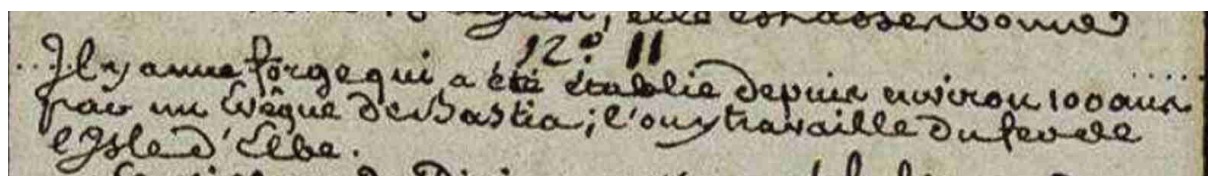 elle est asser bonne
12.º 11
Il y a une forge qui a été établie depuis environ 100 ans
par un Evêque de Bastia; l'on y travaille du fer de
l'Isle d'Elbe.